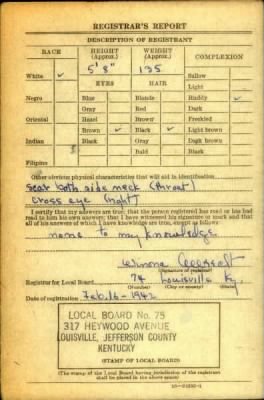 REGISTRAR'S REPORT
DESCRIPTION OF REGISTRANT
RACE HEIGHT (Approx.) WEIGHT (Approx.) COMPLEXION
5' 8" 135
White ✓ Sallow
EYES HAIR Light
Negro Blue Blonde Ruddy ✓
Gray Red Dark
Oriental Hazel Brown Freckled
Brown ✓ Black ✓ Light brown
Indian Black Gray Dark brown
Bald Black
Filipino
Other obvious physical characteristics that will aid in identification
Scar both side neck (throat)
Cross eye (right)
I certify that my answers are true; that the person registered has read or has had
read to him his own answers; that I have witnessed his signature or mark and that
all of his answers of which I have knowledge are true, except as follows:
none to my knowledge
Winona
(Signature of registrar)
Registrar for Local Board 75 Louisville Ky.
(Number) (City or county) (State)
Date of registration Feb. 16 - 1942
LOCAL BOARD No. 75
317 HEYWOOD AVENUE
LOUISVILLE, JEFFERSON COUNTY
KENTUCKY
(STAMP OF LOCAL BOARD)
(The stamp of the Local Board having jurisdiction of the registrant
shall be placed in the above space)